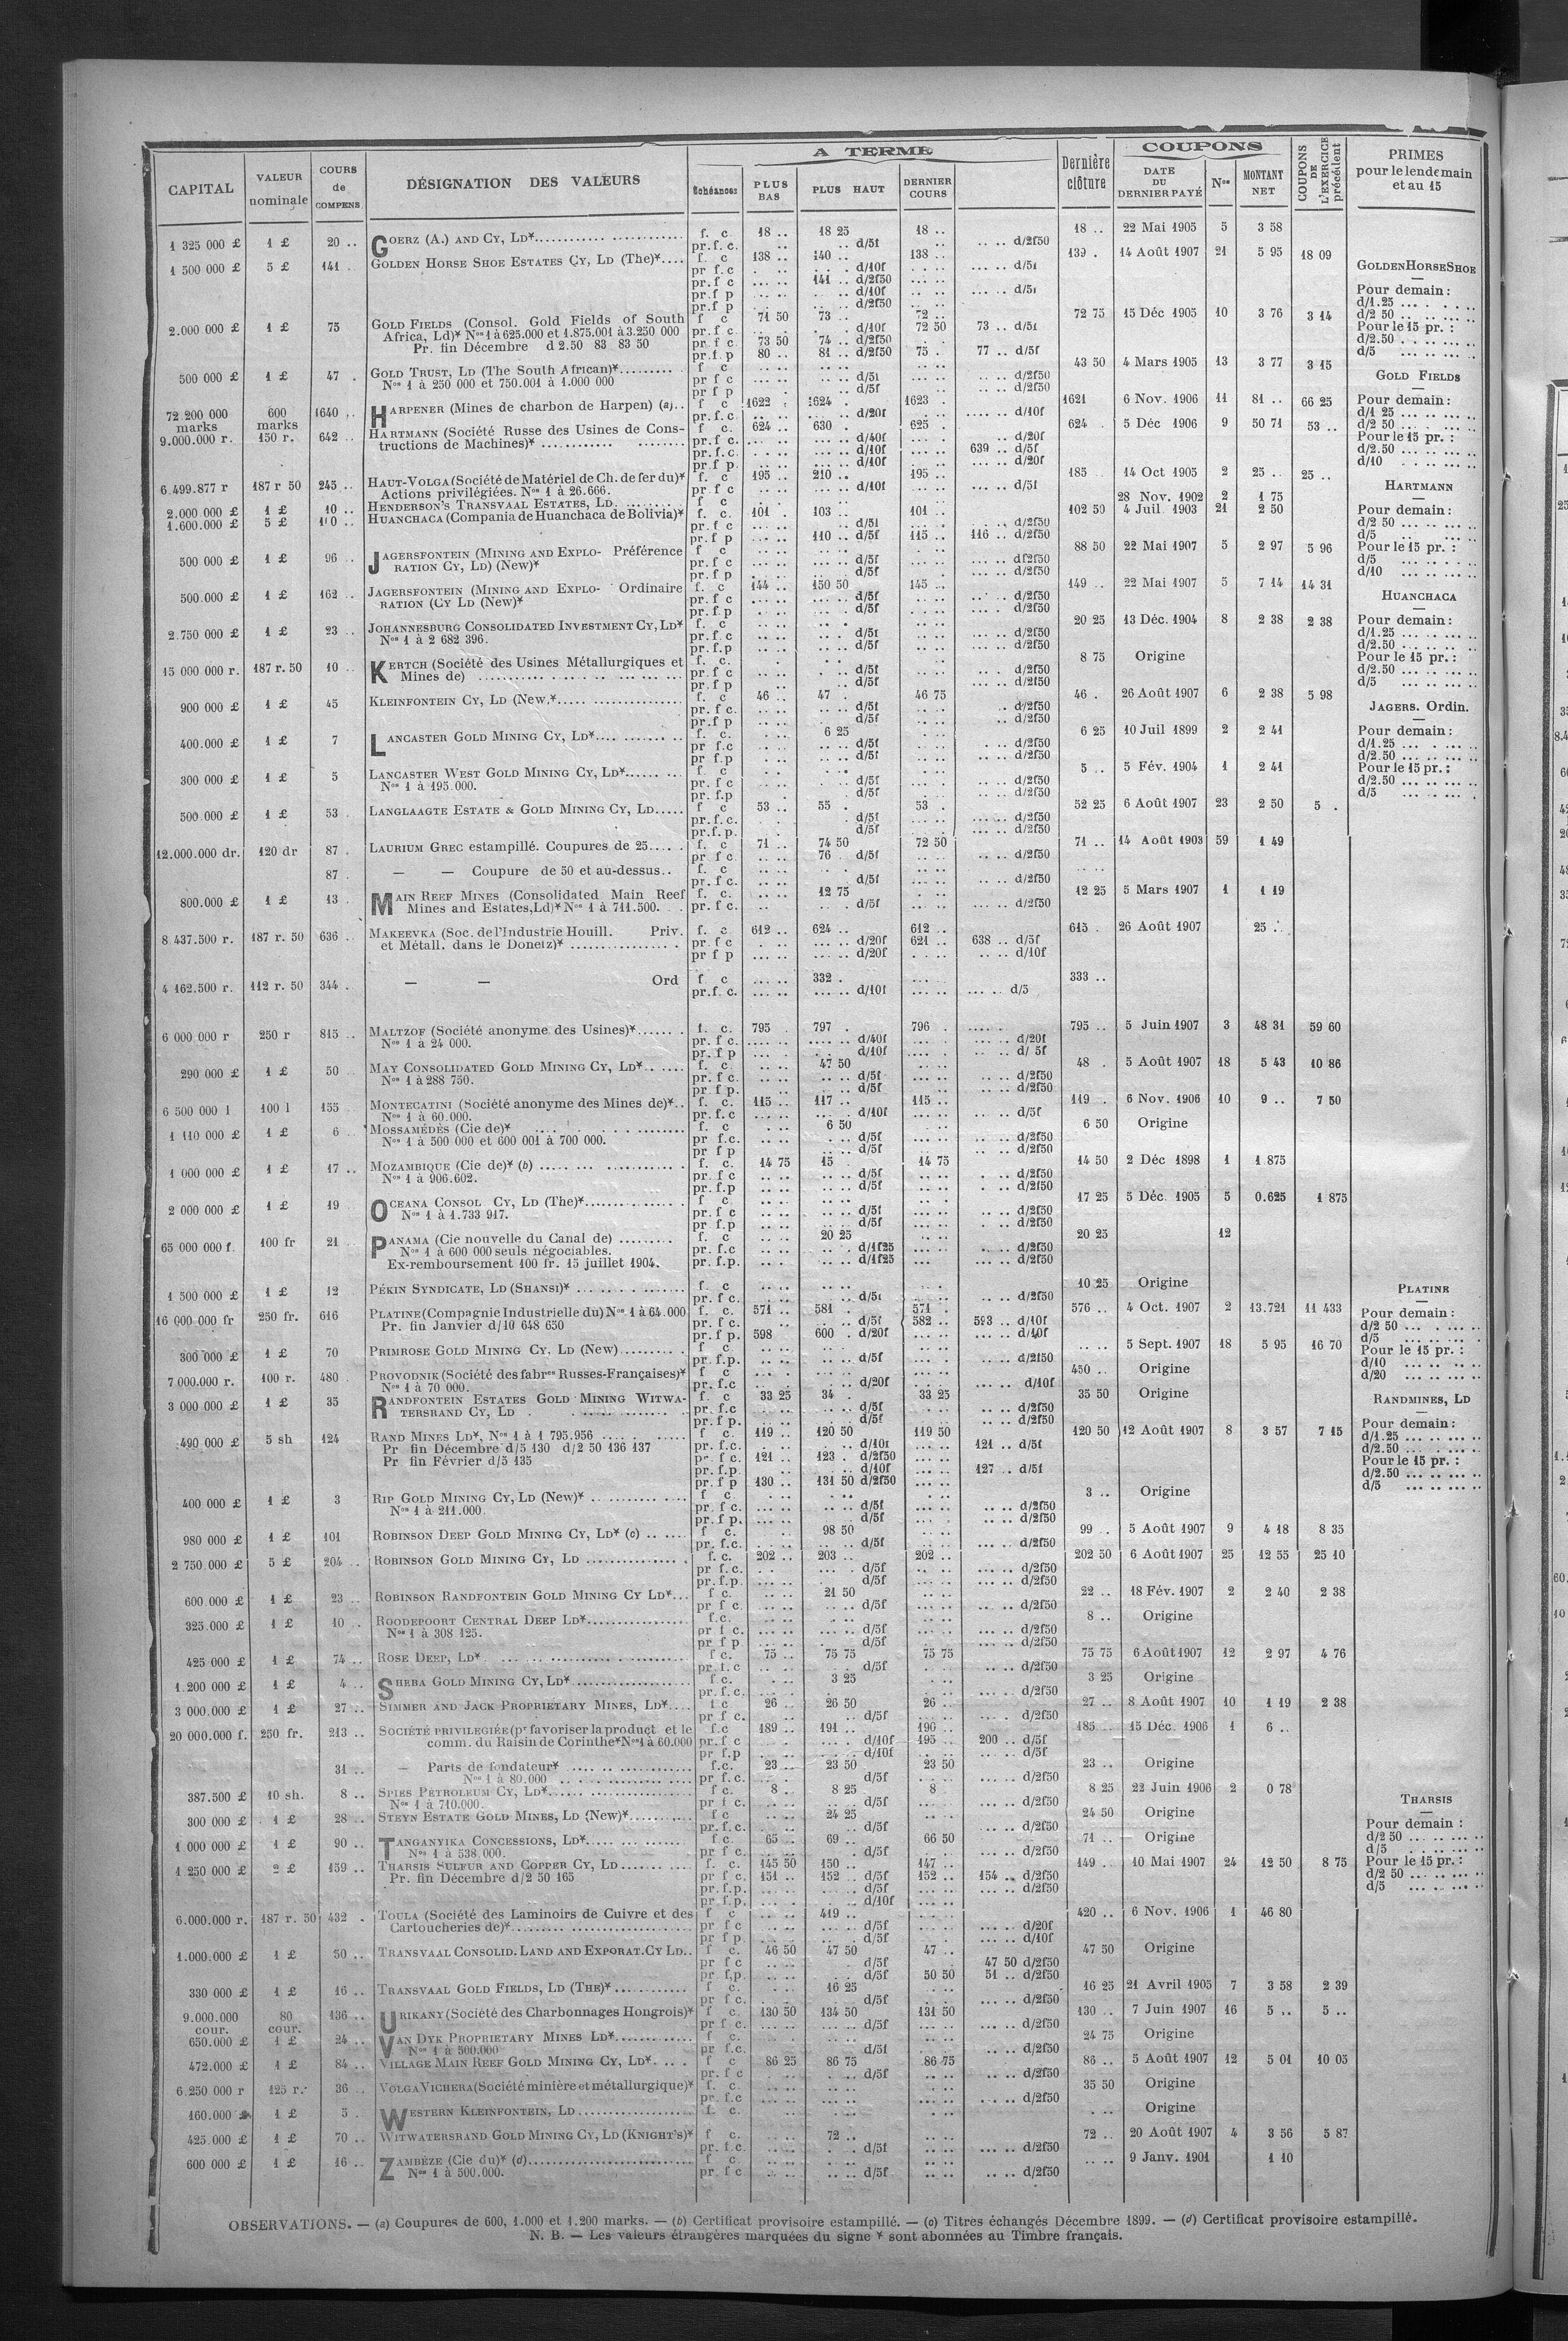 A TERME
COUPONS
CAPITAL | VALEUR nominale | COURS de COMPENS. | DÉSIGNATION DES VALEURS | Échéances | PLUS BAS | PLUS HAUT | DERNIER COURS | Dernière clôture | DATE DU DERNIER PAYÉ | Nos | MONTANT NET | COUPONS DE L'EXERCICE précédent | PRIMES pour le lendemain et au 15
1 325 000 £ | 1 £ | 20 .. | GOERZ (A.) AND CY, LD* | f. c | 18 .. | 18 25 | 18 .. | 18 .. | 22 Mai 1905 | 5 | 3 58
pr. f. c. | .. d/5f | d/2f50
1 500 000 £ | 5 £ | 141 . | GOLDEN HORSE SHOE ESTATES CY, LD (The)* | f. c | 138 .. | 140 .. | 138 .. | 139 . | 14 Août 1907 | 21 | 5 95 | 18 09
pr f.c | d/10f | d/5f
pr.f c | 141 .. d/2f50
pr.f p | d/10f | d/5f
pr.f p | d/2f50
2.000 000 £ | 1 £ | 75 | GOLD FIELDS (Consol. Gold Fields of South | f c | 71 50 | 73 .. | 72 .. | 72 75 | 15 Déc 1905 | 10 | 3 76 | 3 14
Africa, Ld)* Nos 1 à 625.000 et 1.875.001 à 3.250 000 | pr. f c | d/10f | 72 50 | 73 .. d/5f
Pr. fin Décembre d 2.50 83 83 50 | pr. f c | 73 50 | 74 .. d/2f50
pr.f. p | 80 .. | 81 .. d/2f50 | 75 . | 77 .. d/5f
500 000 £ | 1 £ | 47 . | GOLD TRUST, LD (The South African)* | f c | 43 50 | 4 Mars 1905 | 13 | 3 77 | 3 15
Nos 1 à 250 000 et 750.001 à 1.000 000 | pr f c | d/5f | d/2f50
pr f p | d/5f | d/2f50
72 200 000 marks | 600 marks | 1640 .. | HARPENER (Mines de charbon de Harpen) (a) | f c | 1622 . | 1624 . | 1623 . | 1621 | 6 Nov. 1906 | 11 | 81 .. | 66 25
pr. f. c. | d/20f | d/10f
9.000.000 r. | 150 r. | 642 .. | HARTMANN (Société Russe des Usines de Cons- | f c. | 624 .. | 630 . | 625 . | 624 . | 5 Déc 1906 | 9 | 50 71 | 53 ..
tructions de Machines)* | pr.f c. | d/40f | d/20f
pr.f.c. | d/10f | 639 .. d/5f
pr.f p. | d/10f | d/20f
6.499.877 r | 187 r 50 | 245 .. | HAUT-VOLGA (Société de Matériel de Ch. de fer du)* | f. c | 195 .. | 210 .. | 195 .. | 185 | 14 Oct 1905 | 2 | 25 .. | 25 ..
Actions privilégiées. Nos 1 à 26.666. | pr f c | d/10f | d/5f
2.000 000 £ | 1 £ | 10 .. | HENDERSON'S TRANSVAAL ESTATES, LD. | f c | 28 Nov. 1902 | 2 | 1 75
1.600.000 £ | 5 £ | HUANCHACA (Compania de Huanchaca de Bolivia)* | f. c. | 101 . | 103 .. | 101 .. | 102 50 | 4 Juil 1903 | 21 | 2 50
pr. f c | d/5f | d/2f50
pr. f p | 110 .. d/5f | 115 .. | 116 .. d/2f50
500 000 £ | 1 £ | 96 .. | JAGERSFONTEIN (MINING AND EXPLO- Préférence | f c | 88 50 | 22 Mai 1907 | 5 | 2 97 | 5 96
RATION CY, LD) (New)* | pr f c | d/5f | d/2f50
pr. f p | d/5f | d/2f50
500.000 £ | 1 £ | 162 .. | JAGERSFONTEIN (MINING AND EXPLO- Ordinaire | f. c | 144 .. | 150 50 | 145 .. | 149 .. | 22 Mai 1907 | 5 | 7 14 | 14 31
RATION (CY LD (New)* | pr. f c | d/5f | d/2f50
pr. f. p | d/5f | d/2f50
2.750 000 £ | 1 £ | 23 .. | JOHANNESBURG CONSOLIDATED INVESTMENT CY, LD* | f. c | 20 25 | 13 Déc. 1904 | 8 | 2 38 | 2 38
Nos 1 à 2 682 396. | pr. f. c | d/5f | d/2f50
pr. f. p | d/5f | d/2f50
15 000 000 r. | 187 r. 50 | 10 .. | KERTCH (Société des Usines Métallurgiques et | f. c. | 8 75 | Origine
Mines de) | pr. f c | d/5f | d/2f50
pr. f p | d/5f | d/2f50
900 000 £ | 1 £ | 45 | KLEINFONTEIN CY, LD (New.* | f. c | 46 .. | 47 .. | 46 75 | 46 . | 26 Août 1907 | 6 | 2 38 | 5 98
pr. f c. | d/5f | d/2f50
pr.f p | d/5f | d/2f50
400.000 £ | 1 £ | 7 | LANCASTER GOLD MINING CY, LD* | f. c. | 6 25 | 6 25 | 10 Juil 1899 | 2 | 2 41
pr f.c | d/5f | d/2f50
pr f.p | d/5f | d/2f50
300 000 £ | 1 £ | 5 | LANCASTER WEST GOLD MINING CY, LD* | f. c | 5 .. | 5 Fév. 1904 | 1 | 2 41
Nos 1 à 195.000. | pr. f c | d/5f | d/2f50
pr. f.p | d/5f | d/2f50
500.000 £ | 1 £ | 53 . | LANGLAAGTE ESTATE & GOLD MINING CY, LD | f c | 53 .. | 55 . | 53 . | 52 25 | 6 Août 1907 | 23 | 2 50 | 5 .
pr. f.c. | d/5f | d/2f50
pr.f.p. | d/5f | d/2f50
12.000.000 dr. | 120 dr | 87 . | LAURIUM GREC estampillé. Coupures de 25 | f. c | 71 .. | 74 50 | 72 50 | 71 .. | 14 Août 1903 | 59 | 1 49
pr f c | 76 . d/5f | d/2f50
87 . | — — Coupure de 50 et au-dessus.. | f. c
pr. f c. | d/5f | d/2f50
800.000 £ | 1 £ | 13 . | MAIN REEF MINES (Consolidated Main Reef | f. c. | 12 75 | 12 25 | 5 Mars 1907 | 1 | 1 19
Mines and Estates, Ld)* Nos 1 à 711.500. | pr. f c. | d/5f | d/2f50
8 437.500 r. | 187 r. 50 | 636 .. | MAKEEVKA (Soc. de l'Industrie Houill. Priv. | f. c | 612 .. | 624 .. | 612 .. | 615 . | 26 Août 1907 | 25 .
et Métall. dans le Donetz)* | pr. f c | d/20f | 621 .. | 638 .. d/5f
pr f p | d/20f | d/10f
4 162.500 r. | 112 r. 50 | 344 . | — — Ord | f. c | 332 . | 333 ..
pr.f. c. | d/10f | d/5
6 000 000 r | 250 r | 815 .. | MALTZOF (Société anonyme des Usines)* | f. c. | 795 . | 797 . | 796 . | 795 .. | 5 Juin 1907 | 3 | 48 31 | 59 60
Nos 1 à 24 000. | pr. f c. | d/40f | d/20f
pr. f p | d/10f | d/ 5f
290 000 £ | 1 £ | 50 | MAY CONSOLIDATED GOLD MINING CY, LD* | f. c. | 47 50 | 48 . | 5 Août 1907 | 18 | 5 43 | 10 86
Nos 1 à 288 750. | pr. f c. | d/5f | d/2f50
pr f p. | d/5f | d/2f50
6 500 000 l | 100 l | 155 | MONTECATINI (Société anonyme des Mines de)* | f. c. | 115 .. | 117 .. | 115 .. | 119 . | 6 Nov. 1906 | 10 | 9 .. | 7 50
Nos 1 à 60.000. | pr. f. c | d/10f | d/5f
1 110 000 £ | 1 £ | 6 | MOSSAMÉDÈS (Cie de)* | f. c | 6 50 | 6 50 | Origine
Nos 1 à 500 000 et 600 001 à 700 000. | pr f.c. | d/5f | d/2f50
pr f p | d/5f | d/2f50
1 000 000 £ | 1 £ | 17 .. | MOZAMBIQUE (Cie de)* (b) | f. c. | 14 75 | 15 . | 14 75 | 14 50 | 2 Déc 1898 | 1 | 1.875
Nos 1 à 906.602. | pr. f c | d/5f | d/2f50
pr. f.p | d/5f | d/2f50
2 000 000 £ | 1 £ | 19 | OCEANA CONSOL CY, LD (The)* | f c | 17 25 | 5 Déc. 1905 | 5 | 0.625 | 1 875
Nos 1 à 1.733 917. | pr. f c | d/5f | d/2f50
pr. f.p | d/5f | d/2f50
65 000 000 f. | 100 fr | 21 . | PANAMA (Cie nouvelle du Canal de) | f. c | 20 25 | 20 25 | 12
Nos 1 à 600 000 seuls négociables. | pr. f.c | d/1f25 | d/2f50
Ex-remboursement 100 fr. 15 juillet 1904. | pr. f.p. | d/1f25 | d/2f50
1 500 000 £ | 1 £ | 12 | PÉKIN SYNDICATE, LD (SHANSI)* | f. c | 10 25 | Origine
pr. f c. | d/5f | d/2f50
16 000 000 fr | 250 fr. | 616 | PLATINE (Compagnie Industrielle du) Nos 1 à 64.000 | f. c. | 571 .. | 581 . | 571 . | 576 .. | 4 Oct. 1907 | 2 | 13.721 | 11 433
Pr. fin Janvier d/10 648 650 | pr. f c. | d/5f | 582 .. | 593 .. d/10f
pr. f p. | 598 | 600 . d/20f | d/10f
300 000 £ | 1 £ | 70 | PRIMROSE GOLD MINING CY, LD (New) | f c | 5 Sept. 1907 | 18 | 5 95 | 16 70
pr. f.p. | d/5f | d/2f50
7.000.000 r. | 100 r. | 480 . | PROVODNIK (Société des fabres Russes-Françaises)* | f c | 450 .. | Origine
Nos 1 à 70 000. | pr. f.c | d/20f | d/10f
3 000 000 £ | 1 £ | 35 | RANDFONTEIN ESTATES GOLD MINING WITWA- | f. c | 33 25 | 34 . | 33 25 | 35 50 | Origine
TERSRAND CY, LD | pr. f.c | d/5f | d/2f50
pr. f p. | d/5f | d/2f50
490 000 £ | 5 sh | 124 | RAND MINES LD*, Nos 1 à 1 795.956 | f c. | 119 .. | 120 50 | 119 50 | 120 50 | 12 Août 1907 | 8 | 3 57 | 7 15
Pr fin Décembre d/5 130 d/2 50 136 137 | pr. f.c. | d/10f | 121 .. d/5f
Pr fin Février d/5 135 | pr. f c. | 121 .. | 123 . d/2f50
pr. f.p. | d/10f | 127 .. d/5f
pr. f p | 130 .. | 131 50 d/2f50
400 000 £ | 1 £ | 3 | RIP GOLD MINING CY, LD (New)* | f c | 3 .. | Origine
Nos 1 à 211.000. | pr. f c. | d/5f | d/2f50
pr. f p. | d/5f | d/2f50
980 000 £ | 1 £ | 101 | ROBINSON DEEP GOLD MINING CY, LD* (c) | f c. | 98 50 | 99 .. | 5 Août 1907 | 9 | 4 18 | 8 35
pr. f.c. | d/5f | d/2f50
2 750 000 £ | 5 £ | 204 .. | ROBINSON GOLD MINING CY, LD | f. c. | 202 .. | 203 .. | 202 .. | 202 50 | 6 Août 1907 | 25 | 12 55 | 25 10
pr f. c. | d/5f | d/2f50
pr. f.p. | d/5f | d/2f50
600.000 £ | 1 £ | 23 .. | ROBINSON RANDFONTEIN GOLD MINING CY LD* | f c. | 21 50 | 22 .. | 18 Fév. 1907 | 2 | 2 40 | 2 38
pr f c. | d/5f | d/2f50
325.000 £ | 1 £ | 10 . | ROODEPOORT CENTRAL DEEP LD* | f.c. | 8 .. | Origine
Nos 1 à 308 125. | pr f c. | d/5f | d/2f50
pr f p | d/5f | d/2f50
425 000 £ | 1 £ | 74 .. | ROSE DEEP, LD* | f c. | 75 .. | 75 75 | 75 75 | 75 75 | 6 Août 1907 | 12 | 2 97 | 4 76
pr. f. c | d/5f | d/2f50
1.200 000 £ | 1 £ | 4 .. | SHEBA GOLD MINING CY, LD* | f.c. | 3 25 | 3 25 | Origine
pr. f. c. | d/2f50
3 000.000 £ | 1 £ | 27 .. | SIMMER AND JACK PROPRIETARY MINES, LD* | f c | 26 .. | 26 50 | 26 .. | 27 .. | 8 Août 1907 | 10 | 1 19 | 2 38
pr f c. | d/5f | d/2f50
20 000.000 f. | 250 fr. | 213 .. | SOCIÉTÉ PRIVILEGIÉE (pr favoriser la product et le | f.c | 189 .. | 191 .. | 190 .. | 185 .. | 15 Déc. 1906 | 1 | 6 ..
comm. du Raisin de Corinthe* Nos 1 à 60.000 | pr. f c | d/10f | 195 .. | 200 .. d/5f
pr f.p | d/10f | d/5f
31 .. | — Parts de fondateur* | f.c. | 23 .. | 23 50 | 23 50 | 23 .. | Origine
Nos 1 à 80.000 | pr f. c. | d/5f | d/2f50
387.500 £ | 10 sh. | 8 .. | SPIES PÉTROLEUM CY, LD* | f c. | 8 .. | 8 25 | 8 | 8 25 | 22 Juin 1906 | 2 | 0 78
Nos 1 à 710.000. | pr f c. | d/5f | d/2f50
300 000 £ | 1 £ | 28 .. | STEYN ESTATE GOLD MINES, LD (New)* | f c | 24 25 | 24 50 | Origine
pr. f. c. | d/5f | d/2f50
1 000 000 £ | 1 £ | 90 .. | TANGANYIKA CONCESSIONS, LD* | f c. | 65 .. | 69 .. | 66 50 | 71 .. | Origine
Nos 1 à 538.000. | pr f c. | d/5f | d/2f50
1 250 000 £ | 2 £ | 159 .. | THARSIS SULFUR AND COPPER CY, LD | f. c. | 145 50 | 150 .. | 147 .. | 149 . | 10 Mai 1907 | 24 | 12 50 | 8 75
Pr. fin Décembre d/2 50 165 | pr f c. | 151 .. | 152 .. d/5f | 152 .. | 154 .. d/2f50
pr. f.p. | d/5f | d/2f50
pr. f.p. | d/10f
6.000.000 r. | 187 r. 50 | 432 . | TOULA (Société des Laminoirs de Cuivre et des | f c | 419 .. | 420 .. | 6 Nov. 1906 | 1 | 46 80
Cartoucheries de)* | pr f c | d/5f | d/20f
pr f p. | d/5f | d/10f
1.000.000 £ | 1 £ | 50 .. | TRANSVAAL CONSOLID. LAND AND EXPORAT. CY LD | f c. | 46 50 | 47 50 | 47 .. | 47 50 | Origine
pr f c | d/5f | 47 50 d/2f50
pr f.p. | d/5f | 50 50 | 51 .. d/2f50
330 000 £ | 1 £ | 16 .. | TRANSVAAL GOLD FIELDS, LD (THE)* | f c. | 16 25 | 16 25 | 21 Avril 1905 | 7 | 3 58 | 2 39
pr f c. | d/5f | d/2f50
9.000.000 cour. | 80 cour. | 136 .. | URIKANY (Société des Charbonnages Hongrois)* | f c. | 130 50 | 134 50 | 131 50 | 130 .. | 7 Juin 1907 | 16 | 5 .. | 5 ..
pr f c. | d/5f | d/2f50
650.000 £ | 1 £ | 24 .. | VAN DYK PROPRIETARY MINES LD* | f c. | 24 75 | Origine
Nos 1 à 500.000 | pr f.c. | d/5f | d/2f50
472.000 £ | 1 £ | 84 .. | VILLAGE MAIN REEF GOLD MINING CY, LD* | f c | 86 25 | 86 75 | 86 75 | 86 .. | 5 Août 1907 | 12 | 5 01 | 10 05
pr. f c | d/5f | d/2f50
6.250 000 r | 125 r. | 36 .. | VOLGA VICHERA (Société minière et métallurgique)* | f. c. | 35 50 | Origine
pr. f.c | d/2f50
160.000 £ | 1 £ | 5 . | WESTERN KLEINFONTEIN, LD | f. c. | Origine
425.000 £ | 1 £ | 70 .. | WITWATERSRAND GOLD MINING CY, LD (KNIGHT'S)* | f c. | 72 .. | 72 .. | 20 Août 1907 | 4 | 3 56 | 5 87
pr. f.c. | d/5f | d/2f50
600 000 £ | 1 £ | 16 .. | ZAMBÈZE (Cie du)* (d) | f c | 9 Janv. 1901 | 1 10
Nos 1 à 500.000. | pr. f c | d/5f | d/2f50
GOLDEN HORSE SHOE
Pour demain :
d/1.25
d/2 50
Pour le 15 pr. :
d/2.50
d/5
GOLD FIELDS
Pour demain :
d/1 25
d/2 50
Pour le 15 pr. :
d/2.50
d/10
HARTMANN
Pour demain :
d/2 50
d/5
Pour le 15 pr. :
d/5
d/10
HUANCHACA
Pour demain :
d/1.25
d/2.50
Pour le 15 pr. :
d/2.50
d/5
JAGERS. Ordin.
Pour demain :
d/1.25
d/2.50
Pour le 15 pr. :
d/2.50
d/5
PLATINE
Pour demain :
d/2 50
d/5
Pour le 15 pr. :
d/10
d/20
RANDMINES, LD
Pour demain :
d/1.25
d/2.50
Pour le 15 pr. :
d/2.50
d/5
THARSIS
Pour demain :
d/2 50
d/5
Pour le 15 pr. :
d/2 50
d/5
OBSERVATIONS. — (a) Coupures de 600, 1.000 et 1.200 marks. — (b) Certificat provisoire estampillé. — (c) Titres échangés Décembre 1899. — (d) Certificat provisoire estampillé.
N. B. — Les valeurs étrangères marquées du signe * sont abonnées au Timbre français.